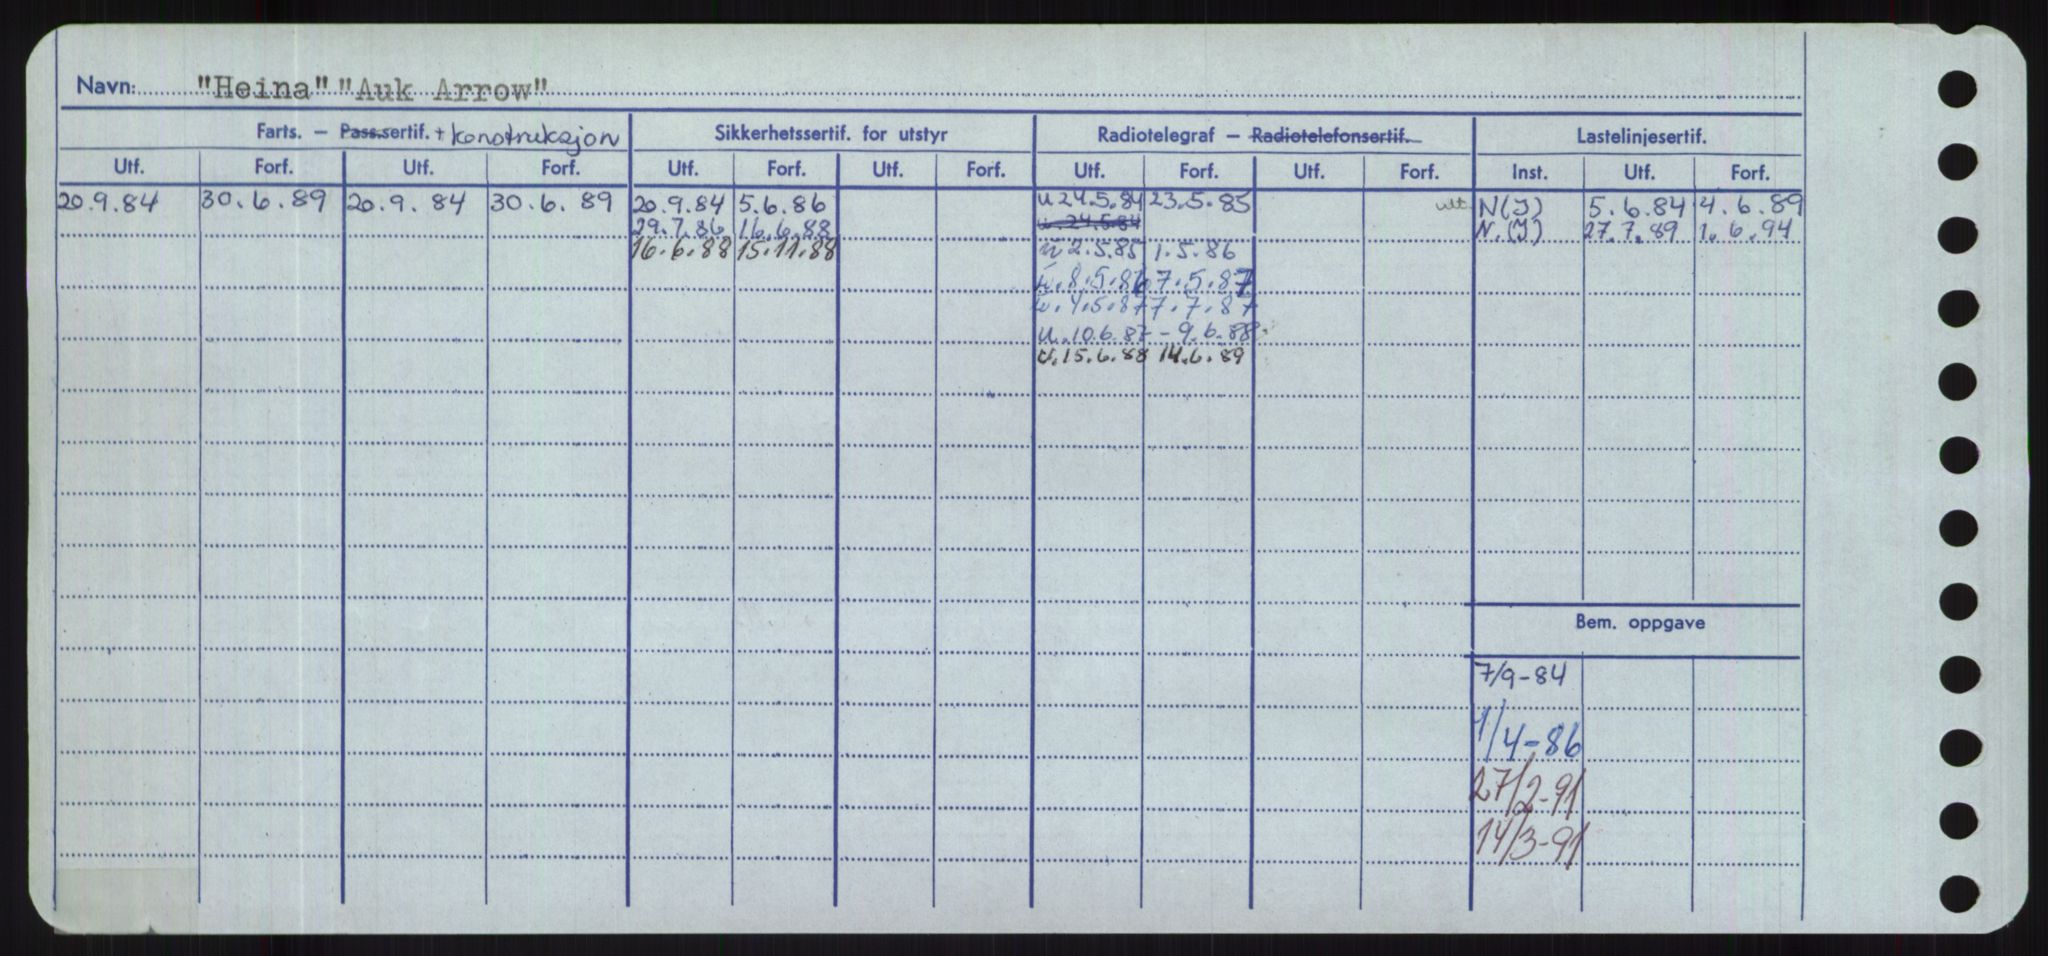 Navn: "Heina" "Auk Arrow"
Farts. – Pass.sertif. + konstruksjon Sikkerhetssertif. for utstyr Radiotelegraf – Radiotelefonsertif. Lastelinjesertif.
Utf. Forf. Utf. Forf. Utf. Forf. Utf. Forf. Utf. Forf. Utf. Forf. Inst. Utf. Forf.
20.9.84 30.6.89 20.9.84 30.6.89 20.9.84 5.6.86 u 24.5.84 23.5.85 utt N(I) 5.6.84 4.6.89
29.7.86 16.6.88 u 24.5.84 N.(I) 27.7.89 1.6.94
16.6.88 15.11.88 u 2.5.85 1.5.86
u.8.5.86 7.5.87
u.4.5.87 7.7.87
u.10.6.87 – 9.6.88
u.15.6.88 14.6.89
Bem. oppgave
7/9-84
1/4-86
27/2-91
14/3-91